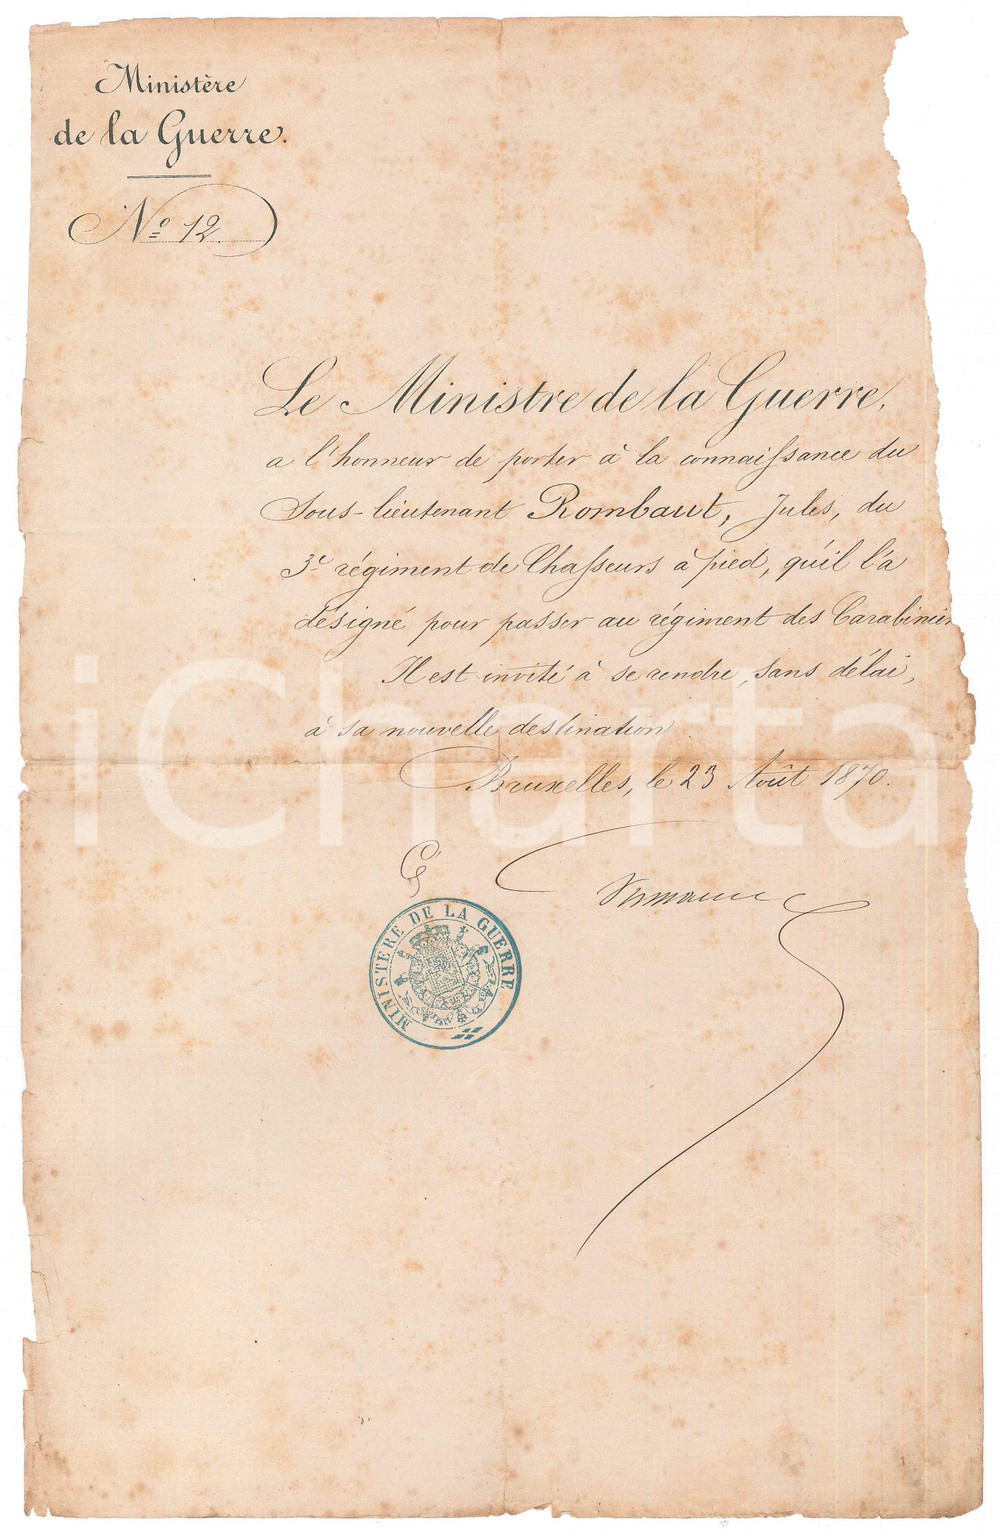 Ministère
de la Guerre.
Nº 12.
Le Ministre de la Guerre,
a l'honneur de porter à la connaissance du
Sous-lieutenant Rombaut, Jules, du
3e régiment de Chasseurs à pied, qu'il l'a
désigné pour passer au régiment des Carabinier
Il est invité à se rendre, sans délai,
à sa nouvelle destination.
Bruxelles, le 23 Août 1870.
MINISTERE DE LA GUERRE
iCharta